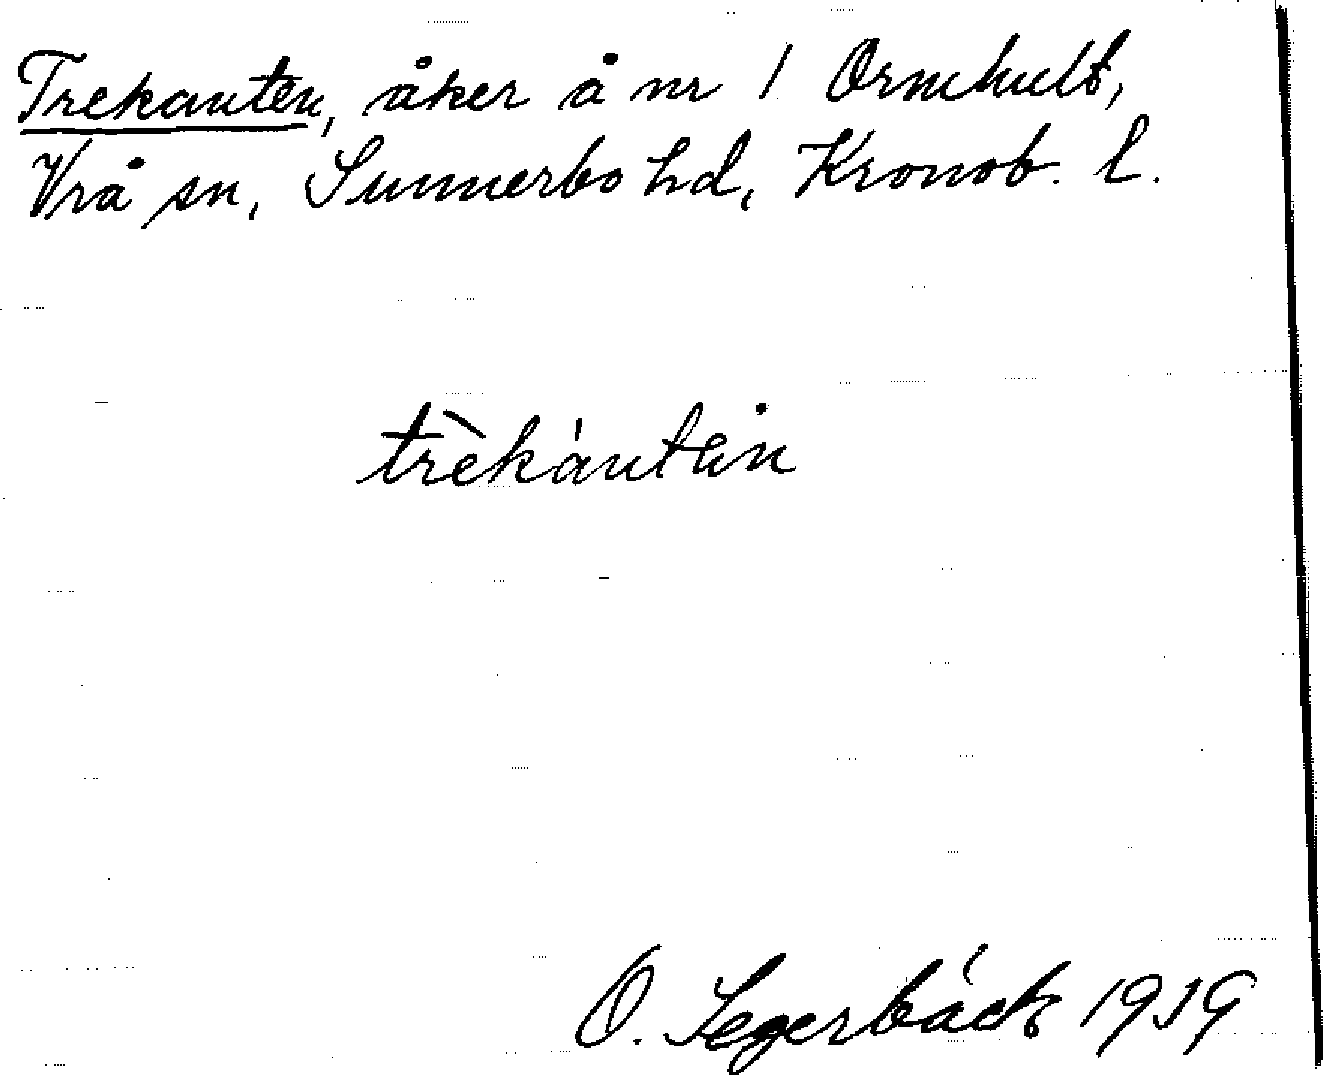 Trekanten, åker å nr 1 Ormhult,
Vrå sn, Sunnerbo hd, Kronob. l.
trèkántän
O. Segerbäck 1919